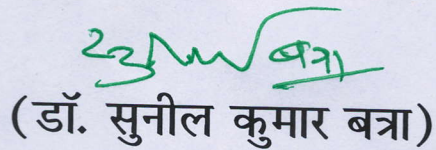 बत्रा
(डॉ. सुनील कुमार बत्रा)